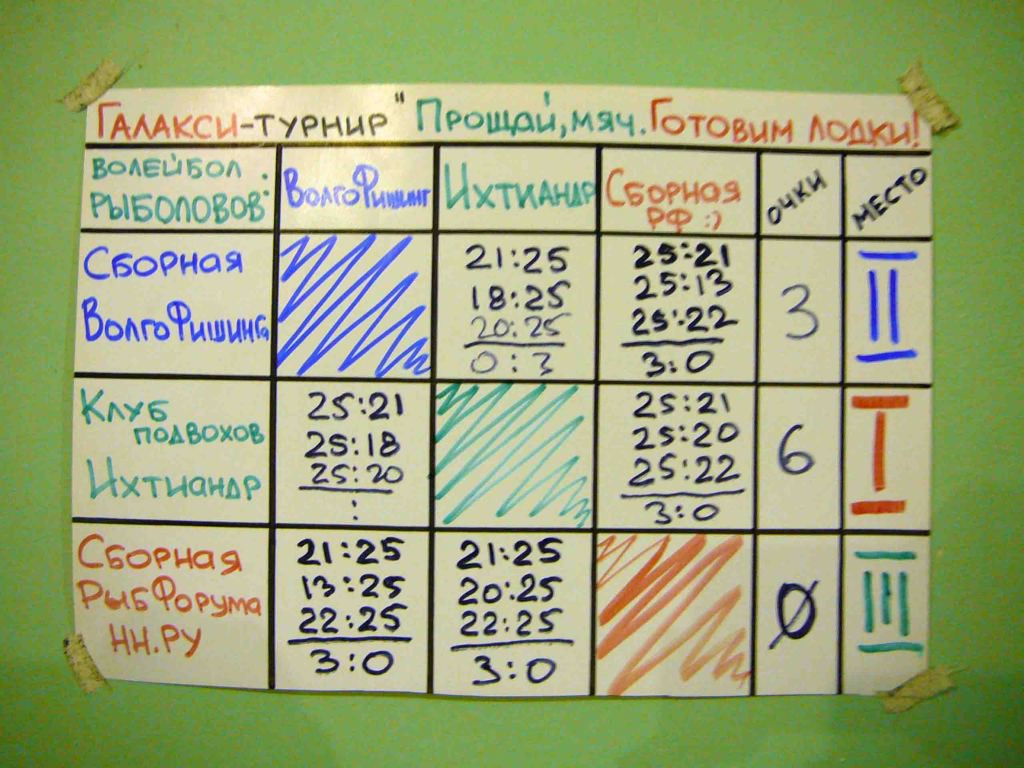 ГАЛАКСИ-ТУРНИР " ПРОЩАЙ, МЯЧ. ГОТОВИМ ЛОДКИ!
ВОЛЕЙБОЛ
РЫБОЛОВОВ:
ВОЛГОФИШИНГ
ИХТИАНДР
СБОРНАЯ
РФ :)
ОЧКИ
МЕСТО
СБОРНАЯ
ВОЛГОФИШИНГА
21:25
18:25
20:25
0:3
25:21
25:13
25:22
3:0
3
II
КЛУБ
ПОДВОХОВ
ИХТИАНДР
25:21
25:18
25:20
:
25:21
25:20
25:22
3:0
6
I
СБОРНАЯ
РЫБФОРУМА
НН.РУ
21:25
13:25
22:25
3:0
21:25
20:25
22:25
3:0
0
III